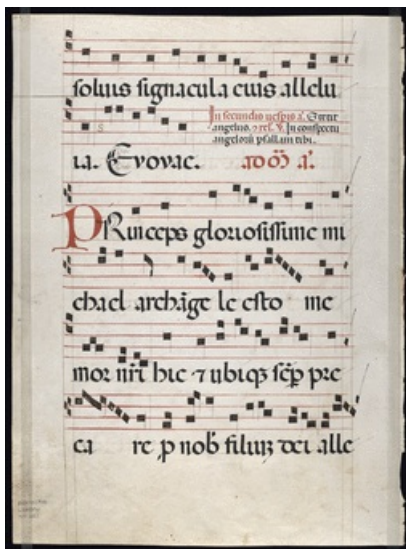 soluis signacula eius allelu
In secundis uespis a. Stetit
angelus. ⁊ rel. ℣. In conspectu
angelorū psallam tibi.
ia. Evovae. ad oō a.
PRinceps gloriosissime mi
chael archāge le esto me
mor nr̄i hic ⁊ ubiqꝫ sēp pre
ca re p nob̄ filiuꝫ dei alle